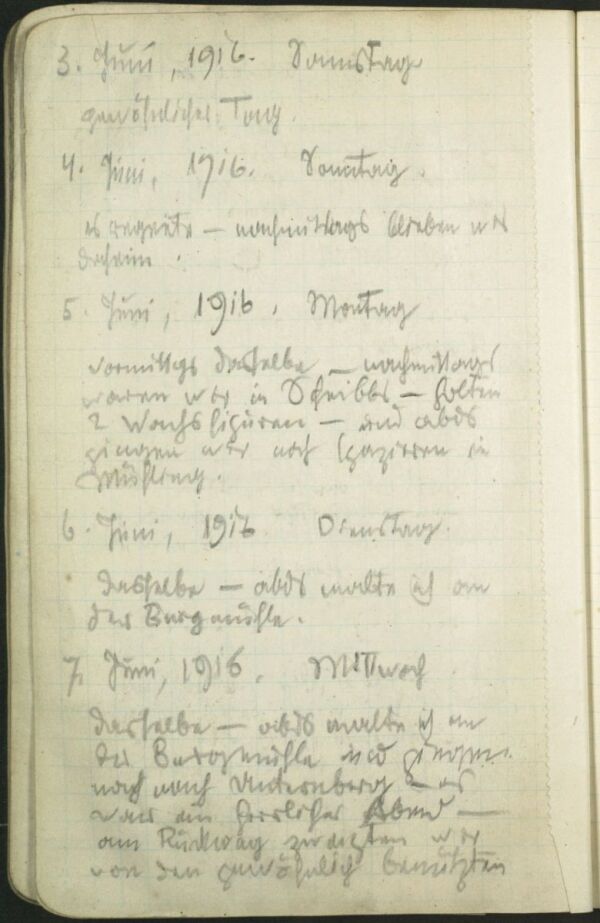 3. Juni, 1916. Samstag
gewöhnlicher Tag.
4. Juni, 1916. Sonntag.
es regnete — nachmittags blieben wir
daheim.
5. Juni, 1916, Montag
vormittgs dasselbe — nachmittags
waren wir in Scheibbs — holten
2 Wachsfiguren — und abds
gingen wir noch spazieren in
Mühling.
6. Juni, 1916 Dienstag.
dasselbe — abds malte ich an
der Burgmühle.
7. Juni, 1916. Mittwoch
dasselbe — abds malte ich an
der Burgmühle und gingen
noch nach — es
war ein herrlicher Abend —
am Rückweg wir
von den gewöhnlich benützten